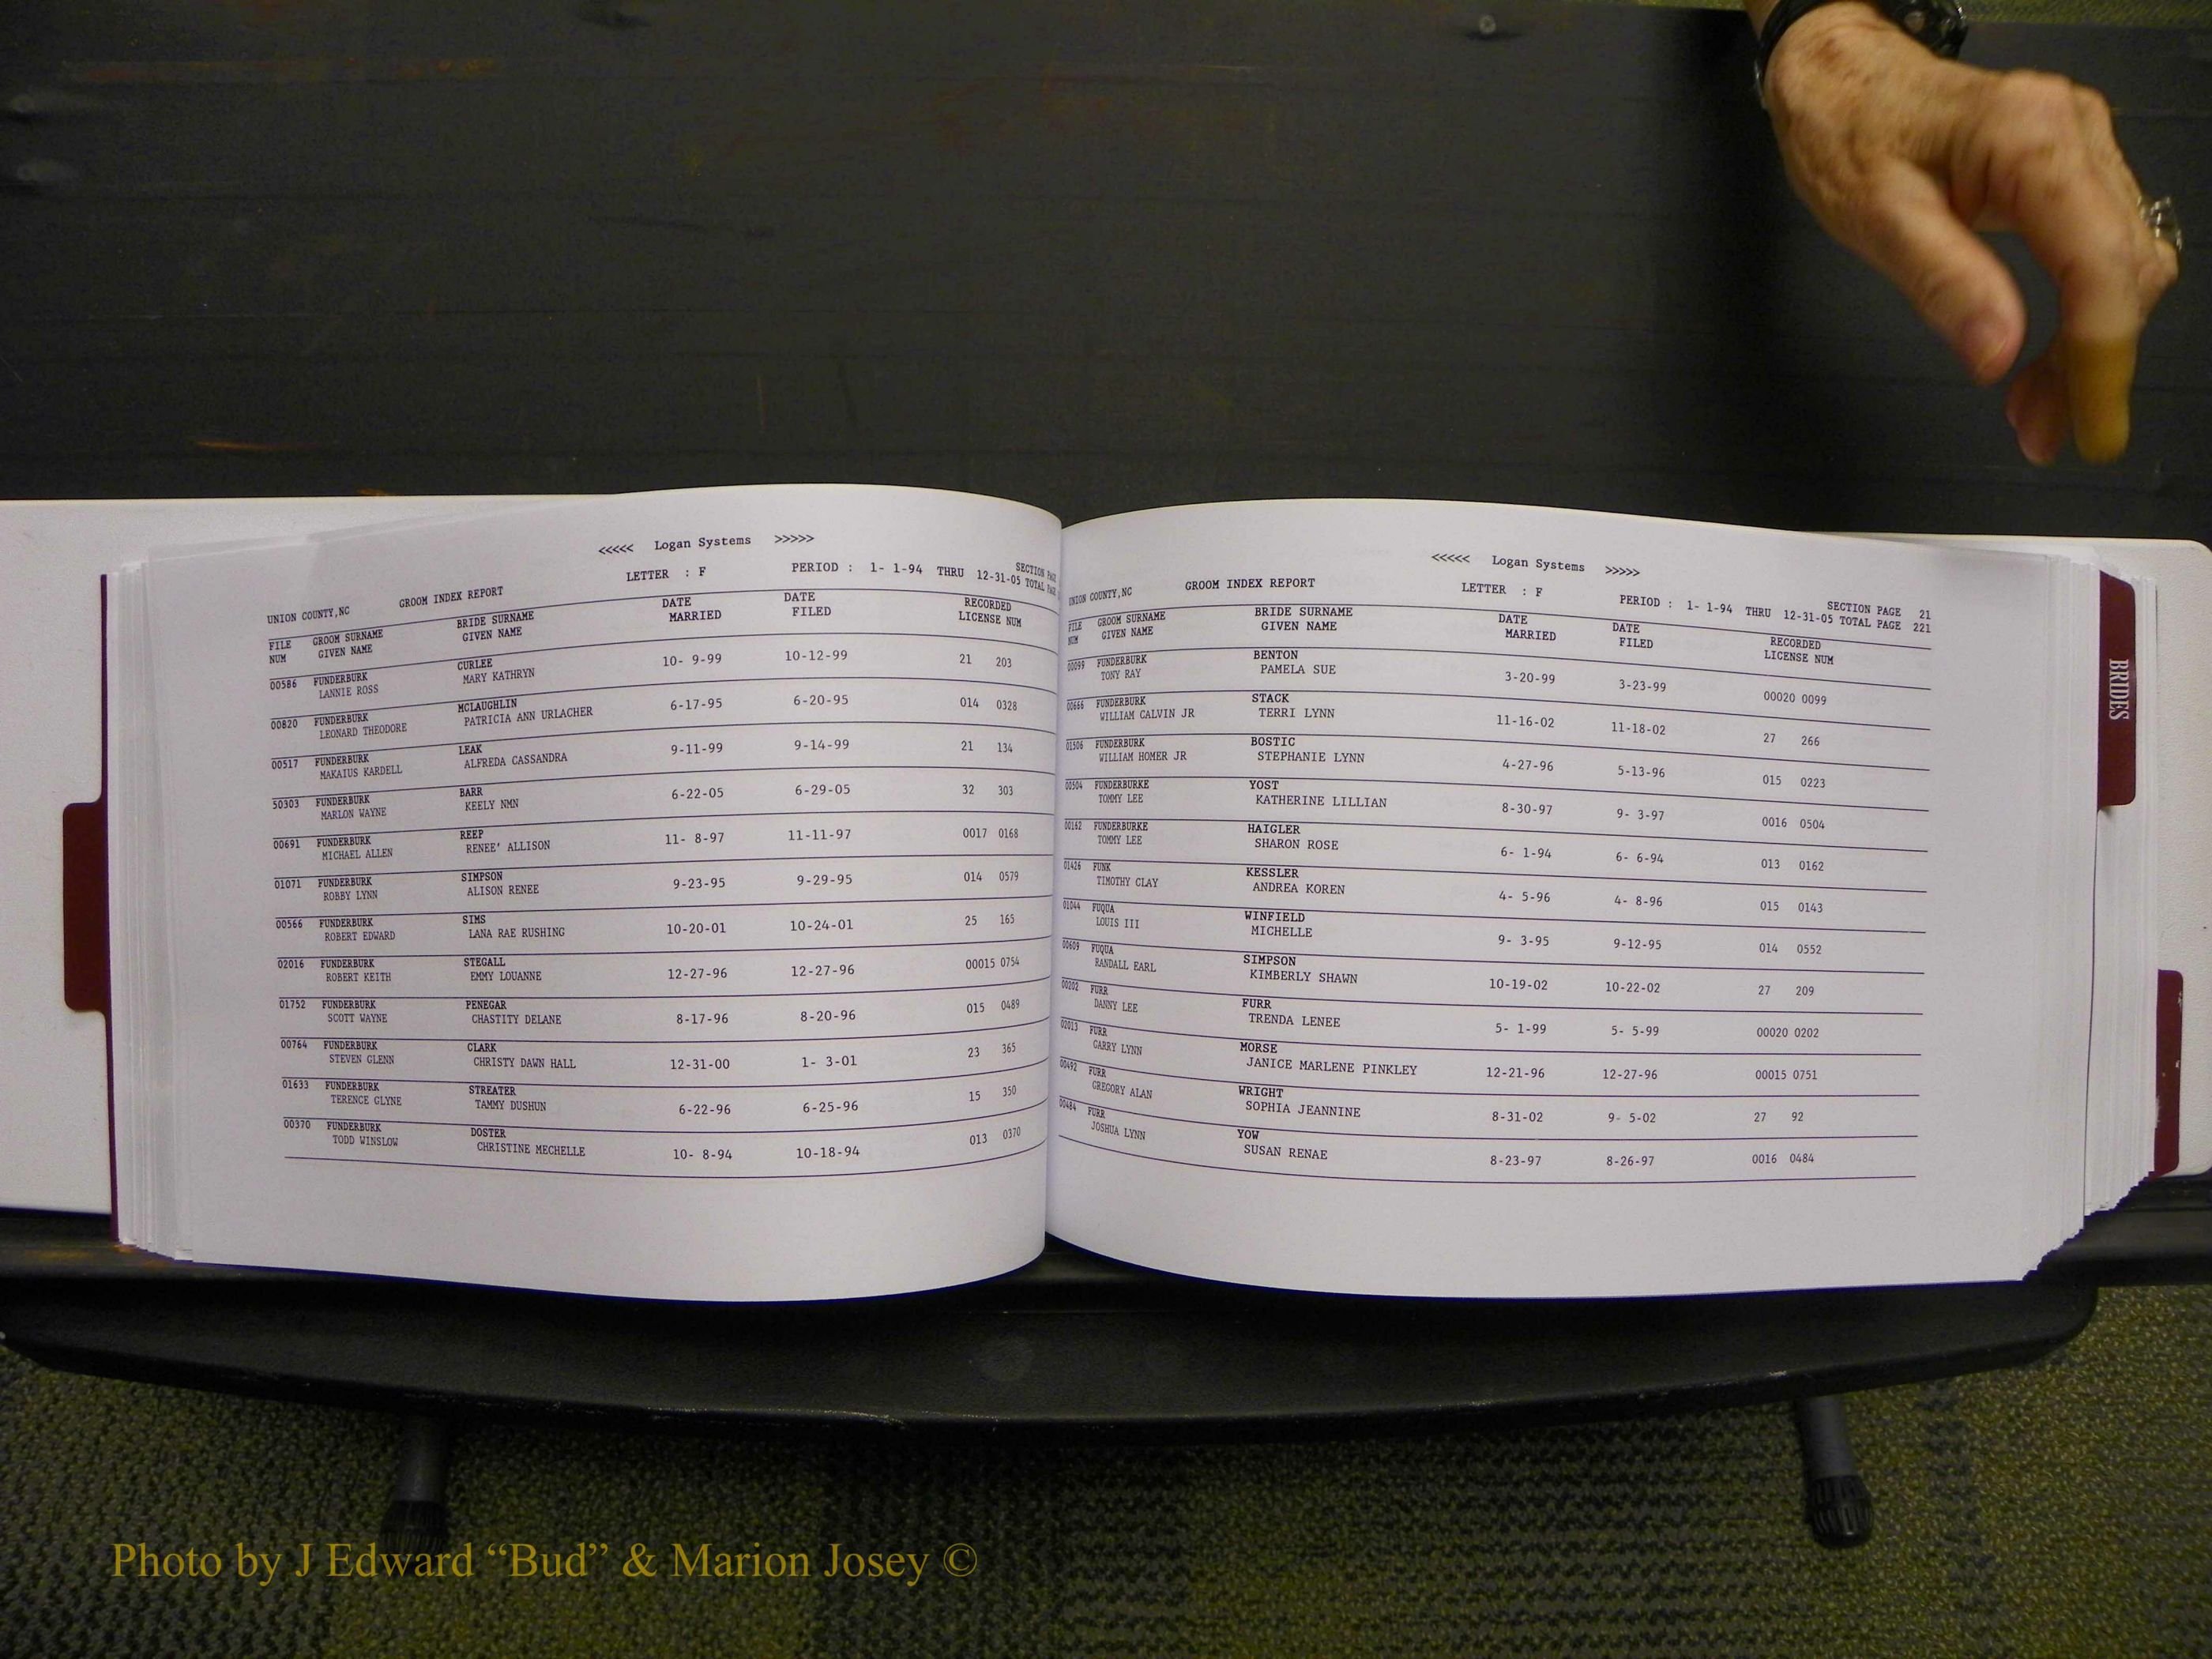 <<<<< Logan Systems >>>>>
UNION COUNTY,NC GROOM INDEX REPORT LETTER : F PERIOD : 1- 1-94 THRU 12-31-05 SECTION
TOTAL
FILE GROOM SURNAME BRIDE SURNAME DATE DATE RECORDED
NUM GIVEN NAME GIVEN NAME MARRIED FILED LICENSE NUM
00586 FUNDERBURK CURLEE 10- 9-99 10-12-99 21 203
LANNIE ROSS MARY KATHRYN
00820 FUNDERBURK MCLAUGHLIN 6-17-95 6-20-95 014 0328
LEONARD THEODORE PATRICIA ANN URLACHER
00517 FUNDERBURK LEAK 9-11-99 9-14-99 21 134
MAKAIUS KARDELL ALFREDA CASSANDRA
50303 FUNDERBURK BARR 6-22-05 6-29-05 32 303
MARLON WAYNE KEELY NMN
00691 FUNDERBURK REEP 11- 8-97 11-11-97 0017 0168
MICHAEL ALLEN RENEE' ALLISON
01071 FUNDERBURK SIMPSON 9-23-95 9-29-95 014 0579
ROBBY LYNN ALISON RENEE
00566 FUNDERBURK SIMS 10-20-01 10-24-01 25 165
ROBERT EDWARD LANA RAE RUSHING
02016 FUNDERBURK STEGALL 12-27-96 12-27-96 00015 0754
ROBERT KEITH EMMY LOUANNE
01752 FUNDERBURK PENEGAR 8-17-96 8-20-96 015 0489
SCOTT WAYNE CHASTITY DELANE
00764 FUNDERBURK CLARK 12-31-00 1- 3-01 23 365
STEVEN GLENN CHRISTY DAWN HALL
01633 FUNDERBURK STREATER 6-22-96 6-25-96 15 350
TERENCE CLYNE TAMMY DUSHUN
00370 FUNDERBURK DOSTER 10- 8-94 10-18-94 013 0370
TODD WINSLOW CHRISTINE MECHELLE
<<<<< Logan Systems >>>>>
UNION COUNTY,NC GROOM INDEX REPORT LETTER : F PERIOD : 1- 1-94 THRU 12-31-05 SECTION PAGE 21
TOTAL PAGE 221
FILE GROOM SURNAME BRIDE SURNAME DATE DATE RECORDED
NUM GIVEN NAME GIVEN NAME MARRIED FILED LICENSE NUM
00099 FUNDERBURK BENTON 3-20-99 3-23-99 00020 0099
TONY RAY PAMELA SUE
00666 FUNDERBURK STACK 11-16-02 11-18-02 27 266
WILLIAM CALVIN JR TERRI LYNN
01506 FUNDERBURK BOSTIC 4-27-96 5-13-96 015 0223
WILLIAM HOMER JR STEPHANIE LYNN
00504 FUNDERBURKE YOST 8-30-97 9- 3-97 0016 0504
TOMMY LEE KATHERINE LILLIAN
00162 FUNDERBURKE HAIGLER 6- 1-94 6- 6-94 013 0162
TOMMY LEE SHARON ROSE
01426 FUNK KESSLER 4- 5-96 4- 8-96 015 0143
TIMOTHY CLAY ANDREA KOREN
01044 FUQUA WINFIELD 9- 3-95 9-12-95 014 0552
LOUIS III MICHELLE
00609 FUQUA SIMPSON 10-19-02 10-22-02 27 209
RANDALL EARL KIMBERLY SHAWN
00202 FURR FURR 5- 1-99 5- 5-99 00020 0202
DANNY LEE TRENDA LENEE
02013 FURR MORSE 12-21-96 12-27-96 00015 0751
GARRY LYNN JANICE MARLENE PINKLEY
00492 FURR WRIGHT 8-31-02 9- 5-02 27 92
GREGORY ALAN SOPHIA JEANNINE
00484 FURR YOW 8-23-97 8-26-97 0016 0484
JOSHUA LYNN SUSAN RENAE
BRIDES
Photo by J Edward “Bud” & Marion Josey ©